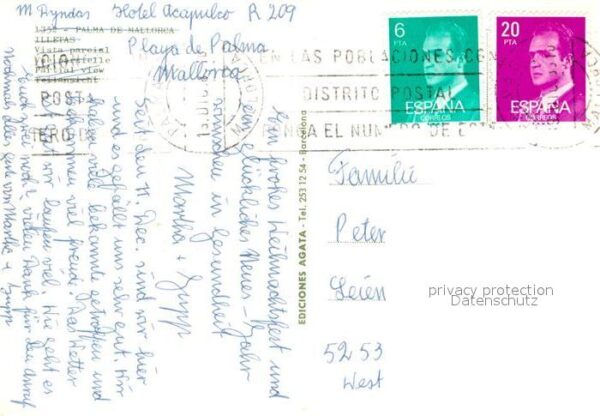 M Ryndas Hotel Acapulco R 209
1358 - PALMA DE MALLORCA
ILLETAS
Vista parcial
Vue partielle
Partial view
Teilansicht
Playa de Palma
Mallorca
6
PTA
ESPAÑA
CORREOS
20
PTA
ESPAÑA
CORREOS
EN LAS POBLACIONES CON
DISTRITO POSTAL
PONGA EL NUMERO DE ESTE
POST
Ein frohes Weihnachtsfest und
ein glückliches Neues-Jahr
wünschen in Gesundheit
Martha + Zupp
Seit den 11. Dec. sind wir hier
und es gefällt uns sehr gut. Wir
haben viele bekannte getroffen und
viel freude. Das Wetter
ist gut wir laufen viel. Wie geht es
Euch vielen Dank für den Anruf
Nochmals alles gute von Martha + Zupp
EDICIONES AGATA - Tel. 253 12 54 - Barcelona
Familie
Peter
Leien
5253
West
privacy protection
Datenschutz